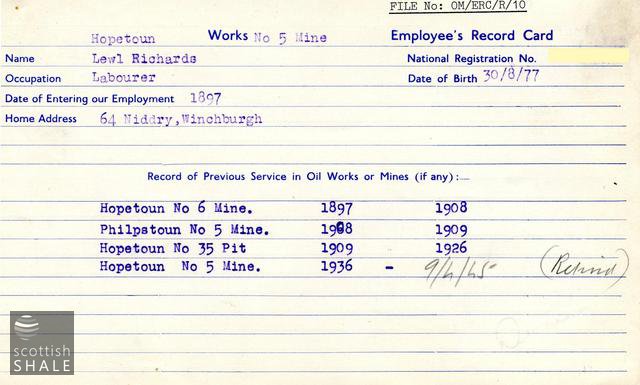 FILE No: OM/ERC/R/10
Hopetoun Works No 5 Mine Employee's Record Card
Name Lewl Richards National Registration No.
Occupation Labourer Date of Birth 30/8/77
Date of Entering our Employment 1897
Home Address 64 Niddry, Winchburgh
Record of Previous Service in Oil Works or Mines (if any):—
Hopetoun No 6 Mine. 1897 1908
Philpstoun No 5 Mine. 1908 1909
Hopetoun No 35 Pit 1909 1926
Hopetoun No 5 Mine. 1936 - 9/4/45 (Retired)
scottish
SHALE